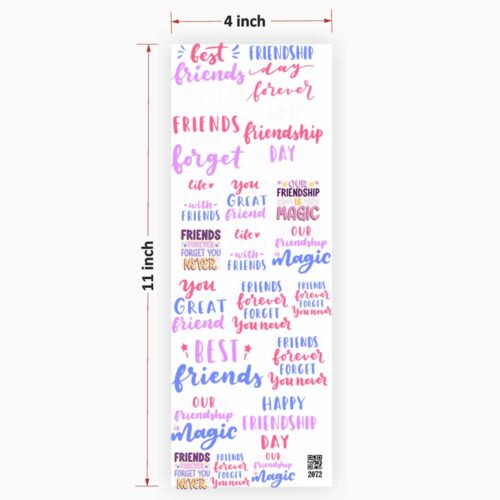 4 inch
11 inch
best
friends
FRIENDSHIP
day
forever
FRIENDS
forget
friendship
DAY
life
-with-
FRIENDS
you
GREAT
friend
OUR
FRIENDSHIP
IS
MAGIC
FRIENDS
FOREVER
FORGET YOU
NEVER
life
-with-
FRIENDS
OUR
friendship
is Magic
You
GREAT
friend
FRIENDS
forever
FORGET
You never
FRIENDS
forever
FORGET
You never
BEST
friends
FRIENDS
forever
FORGET
You never
OUR
friendship
is Magic
HAPPY
FRIENDSHIP
DAY
FRIENDS
FOREVER
FORGET YOU
NEVER
FRIENDS
forever
FORGET
You never
OUR
friendship
is Magic
2072